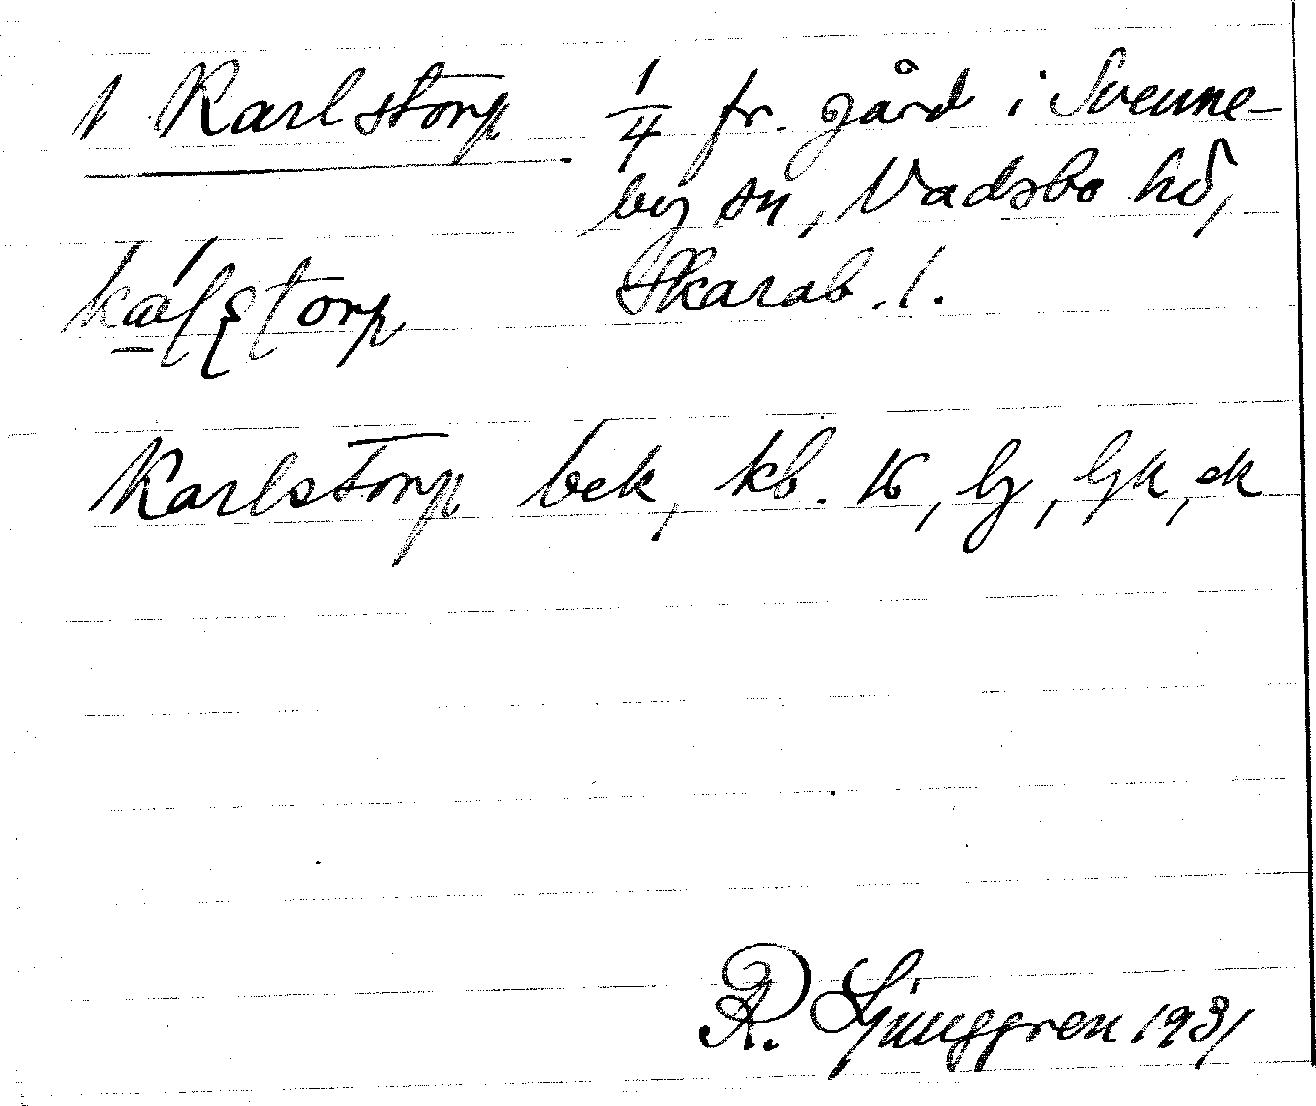 1 Karlstorp 1/4 fr. gård i Svenne-
by sn, Vadsbo hd,
Skarab. l.
Karlstorp bek, kb. 16, lj, ljk, ek
R. Ljunggren 1931